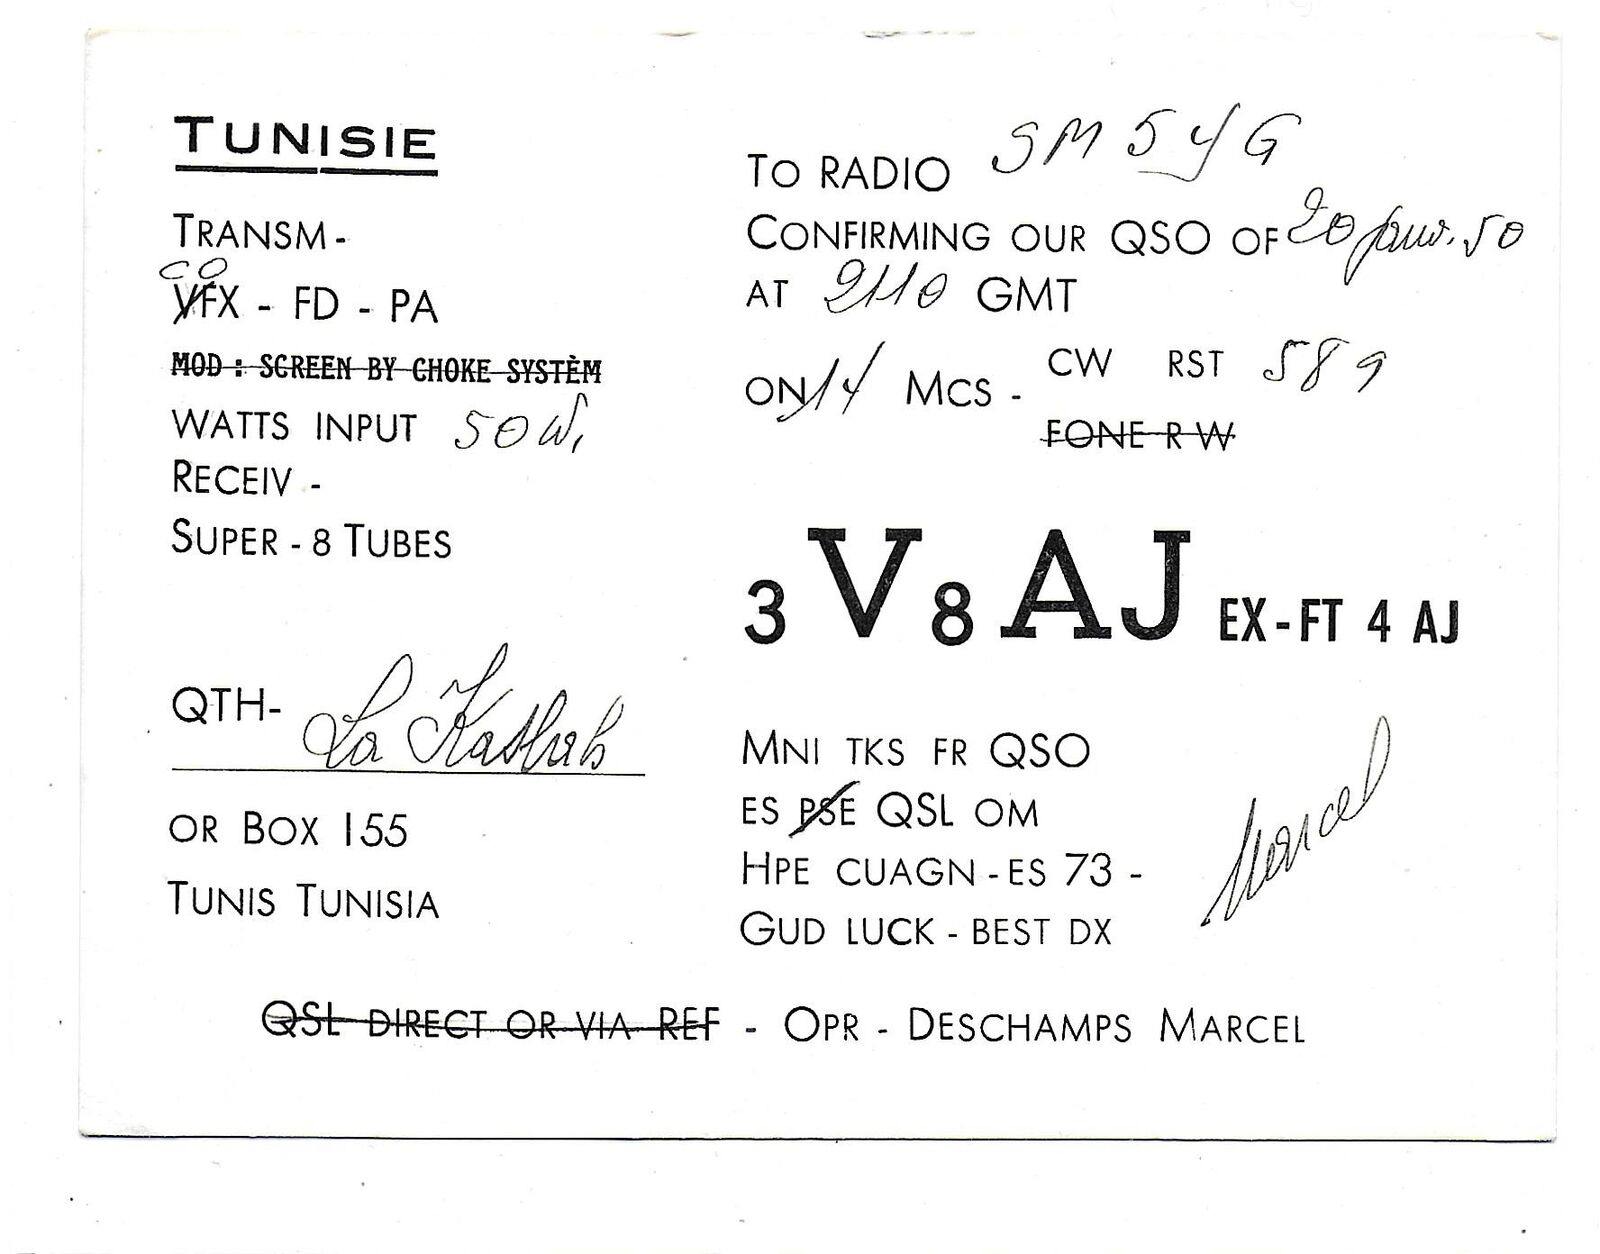 TUNISIE
TRANSM -
CO
VFX - FD - PA
MOD : SCREEN BY CHOKE SYSTÈM
WATTS INPUT 50 W.
RECEIV -
SUPER - 8 TUBES
QTH- La Kasbah
OR BOX 155
TUNIS TUNISIA
TO RADIO SM5YG
CONFIRMING OUR QSO OF 20 janv. 50
AT 2110 GMT
ON 14 MCS - CW RST 589
FONE R W
3V8AJ EX-FT 4 AJ
MNI TKS FR QSO
ES PSE QSL OM
HPE CUAGN - ES 73 -
GUD LUCK - BEST DX
Marcel
QSL DIRECT OR VIA REF - OPR - DESCHAMPS MARCEL